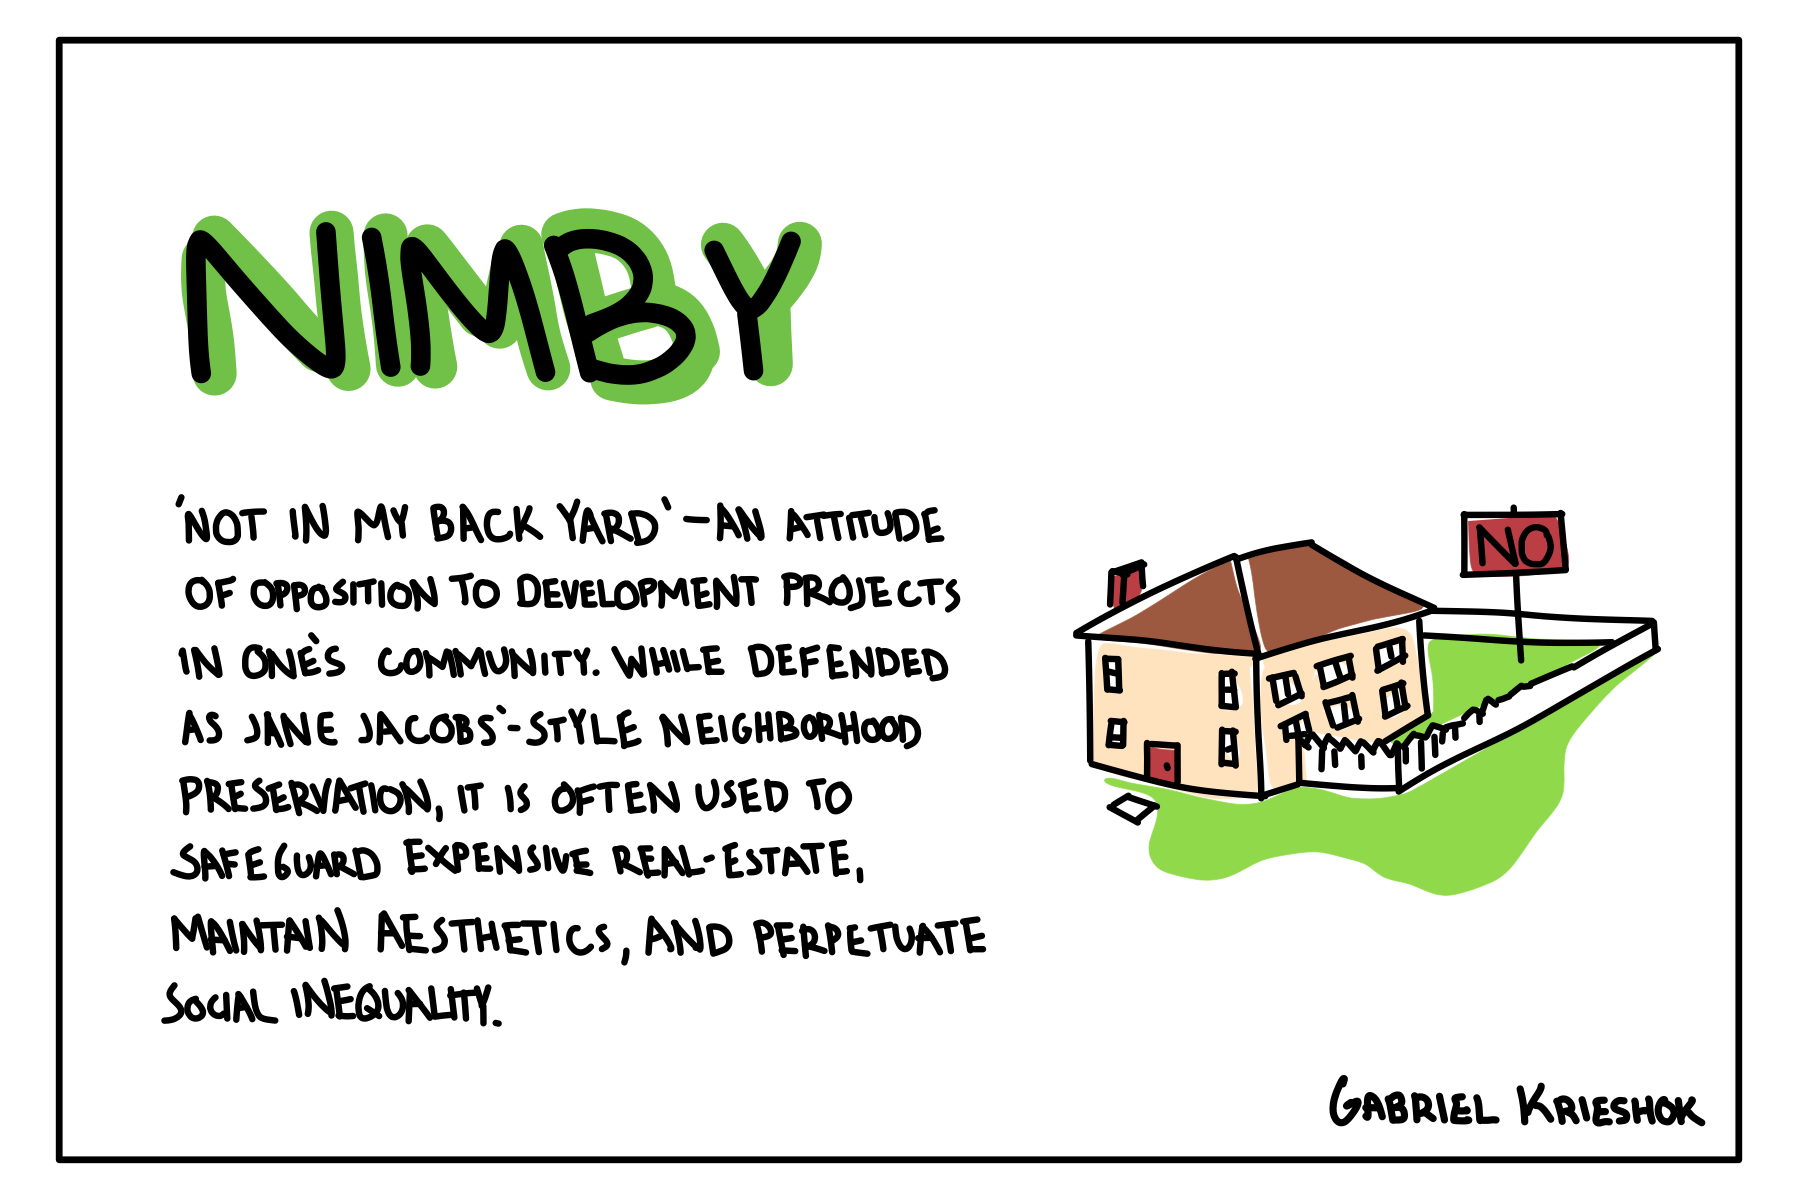 NIMBY
'NOT IN MY BACK YARD' - AN ATTITUDE
OF OPPOSITION TO DEVELOPMENT PROJECTS
IN ONE'S COMMUNITY. WHILE DEFENDED
AS JANE JACOBS'-STYLE NEIGHBORHOOD
PRESERVATION, IT IS OFTEN USED TO
SAFEGUARD EXPENSIVE REAL-ESTATE,
MAINTAIN AESTHETICS, AND PERPETUATE
SOCIAL INEQUALITY.
NO
GABRIEL KRIESHOK